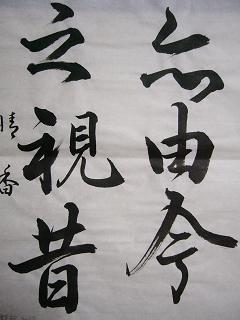 亦由今
之視昔
晴香